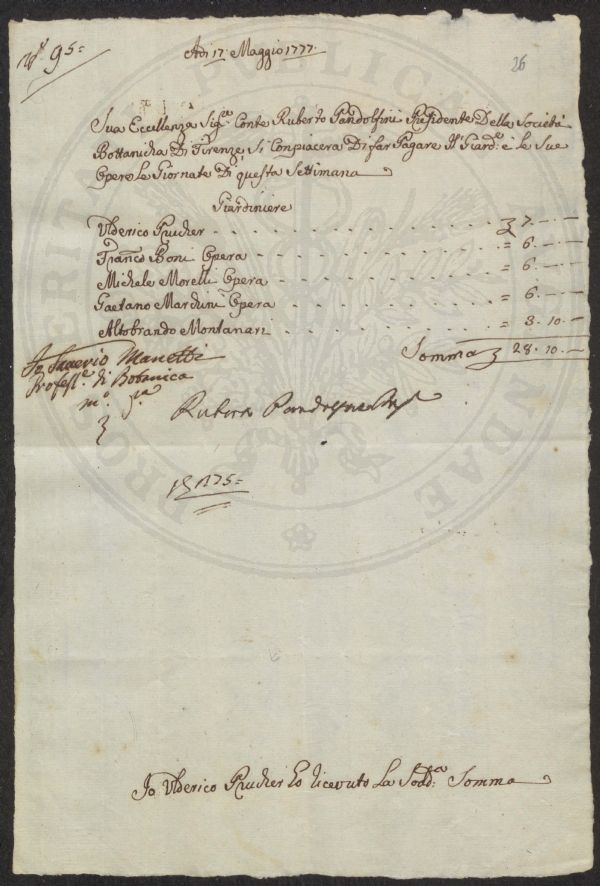 N.º 95=
Adi 17. Maggio 1777.
26
Sua Eccellenza Sig.re Conte Ruberto Pandolfini Presidente Della Società
Bottanicha Di Firenze, Si Conpiacera Di far Pagare Il Giard.e è le Sue
Opere Le Giornate Di questa Settimana
Giardiniere
Ulderico Prucher - - - - - - - - - - - - 7. -. -
Franco Boni Opera - - - - - - - - - - = 6. -. -
Michele Morelli Opera - - - - - - - - = 6. -. -
Gaetano Marduni Opera - - - - - - - = 6. -. -
Altobrando Montanari - - - - - - - - = 3. 10. -
Somma 28. 10. -
Io Saverio Manetti
Profess.e di Botanica
m.º p.a
Ruberto Pandolfini
175=
Io Ulderico Prucher Ho ricevuto La Sodd.a Somma
PUBLICAE
PROSPERITATI